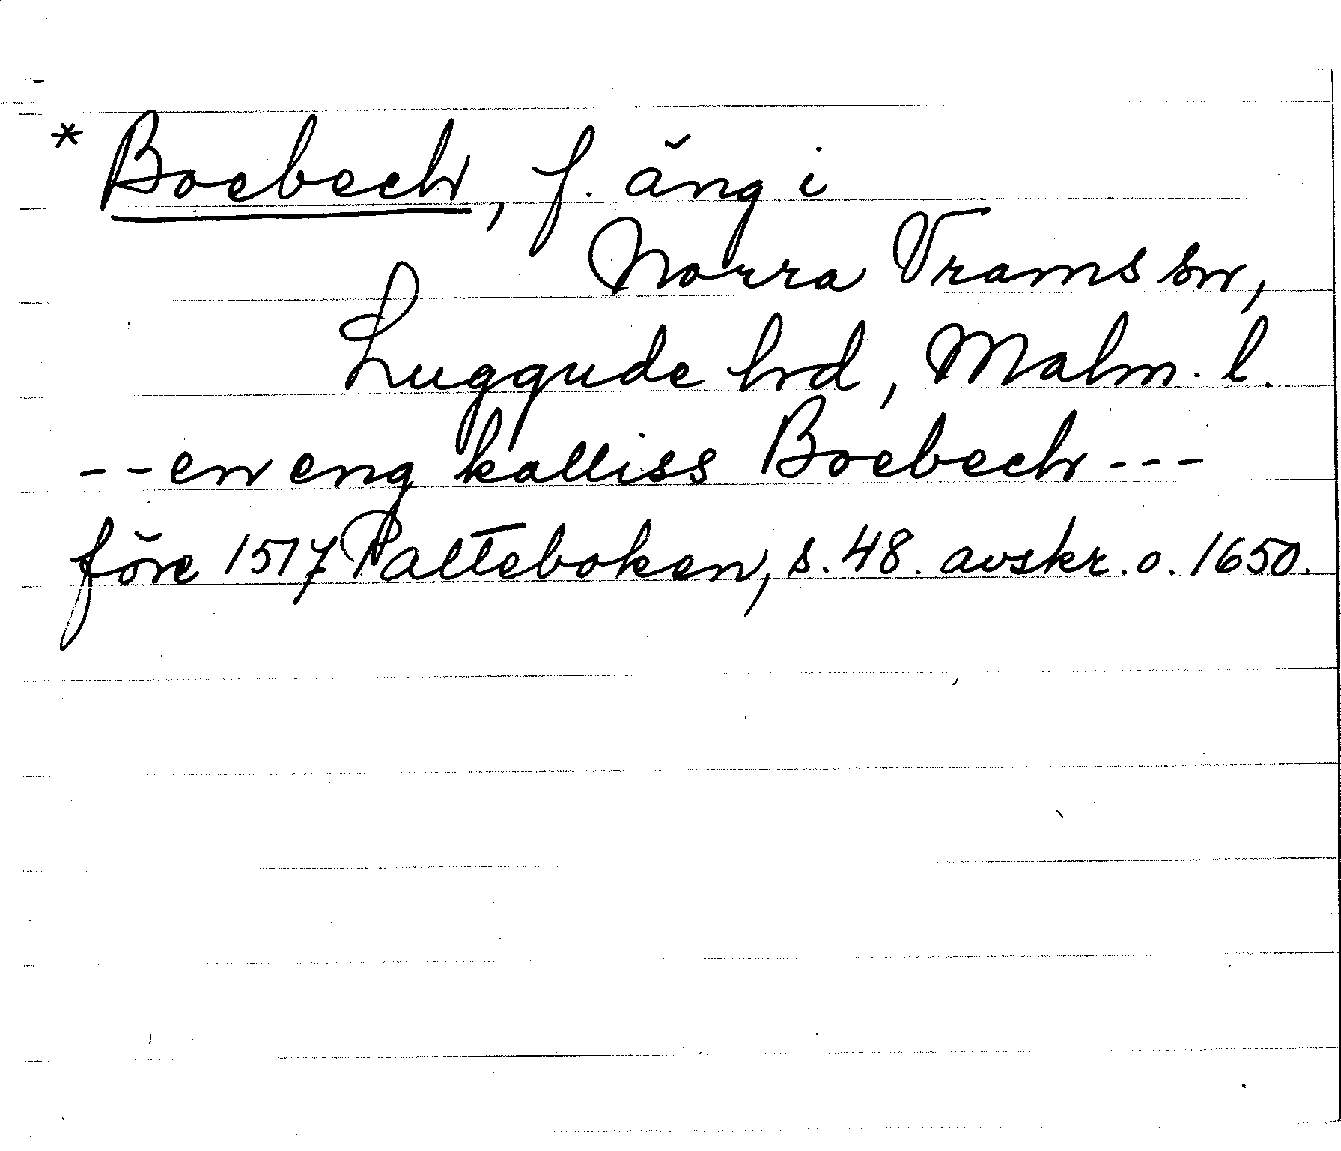 * Boebech, f. äng i
Norra Vrams sn,
Luggude hd, Malm. l.
-- en eng kalliss Boebech ---
före 1517 Palteboken, s. 48. avskr. o. 1650.